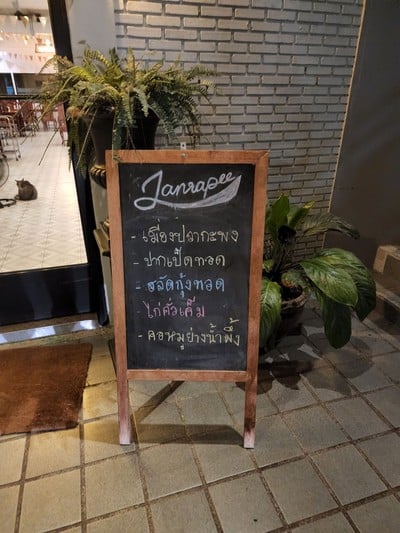 Janrapee
- เมี่ยงปลากะพง
- ปากเป็ดทอด
- สลัดกุ้งทอด
- ไก่คั่วเค็ม
- คอหมูย่างน้ำผึ้ง